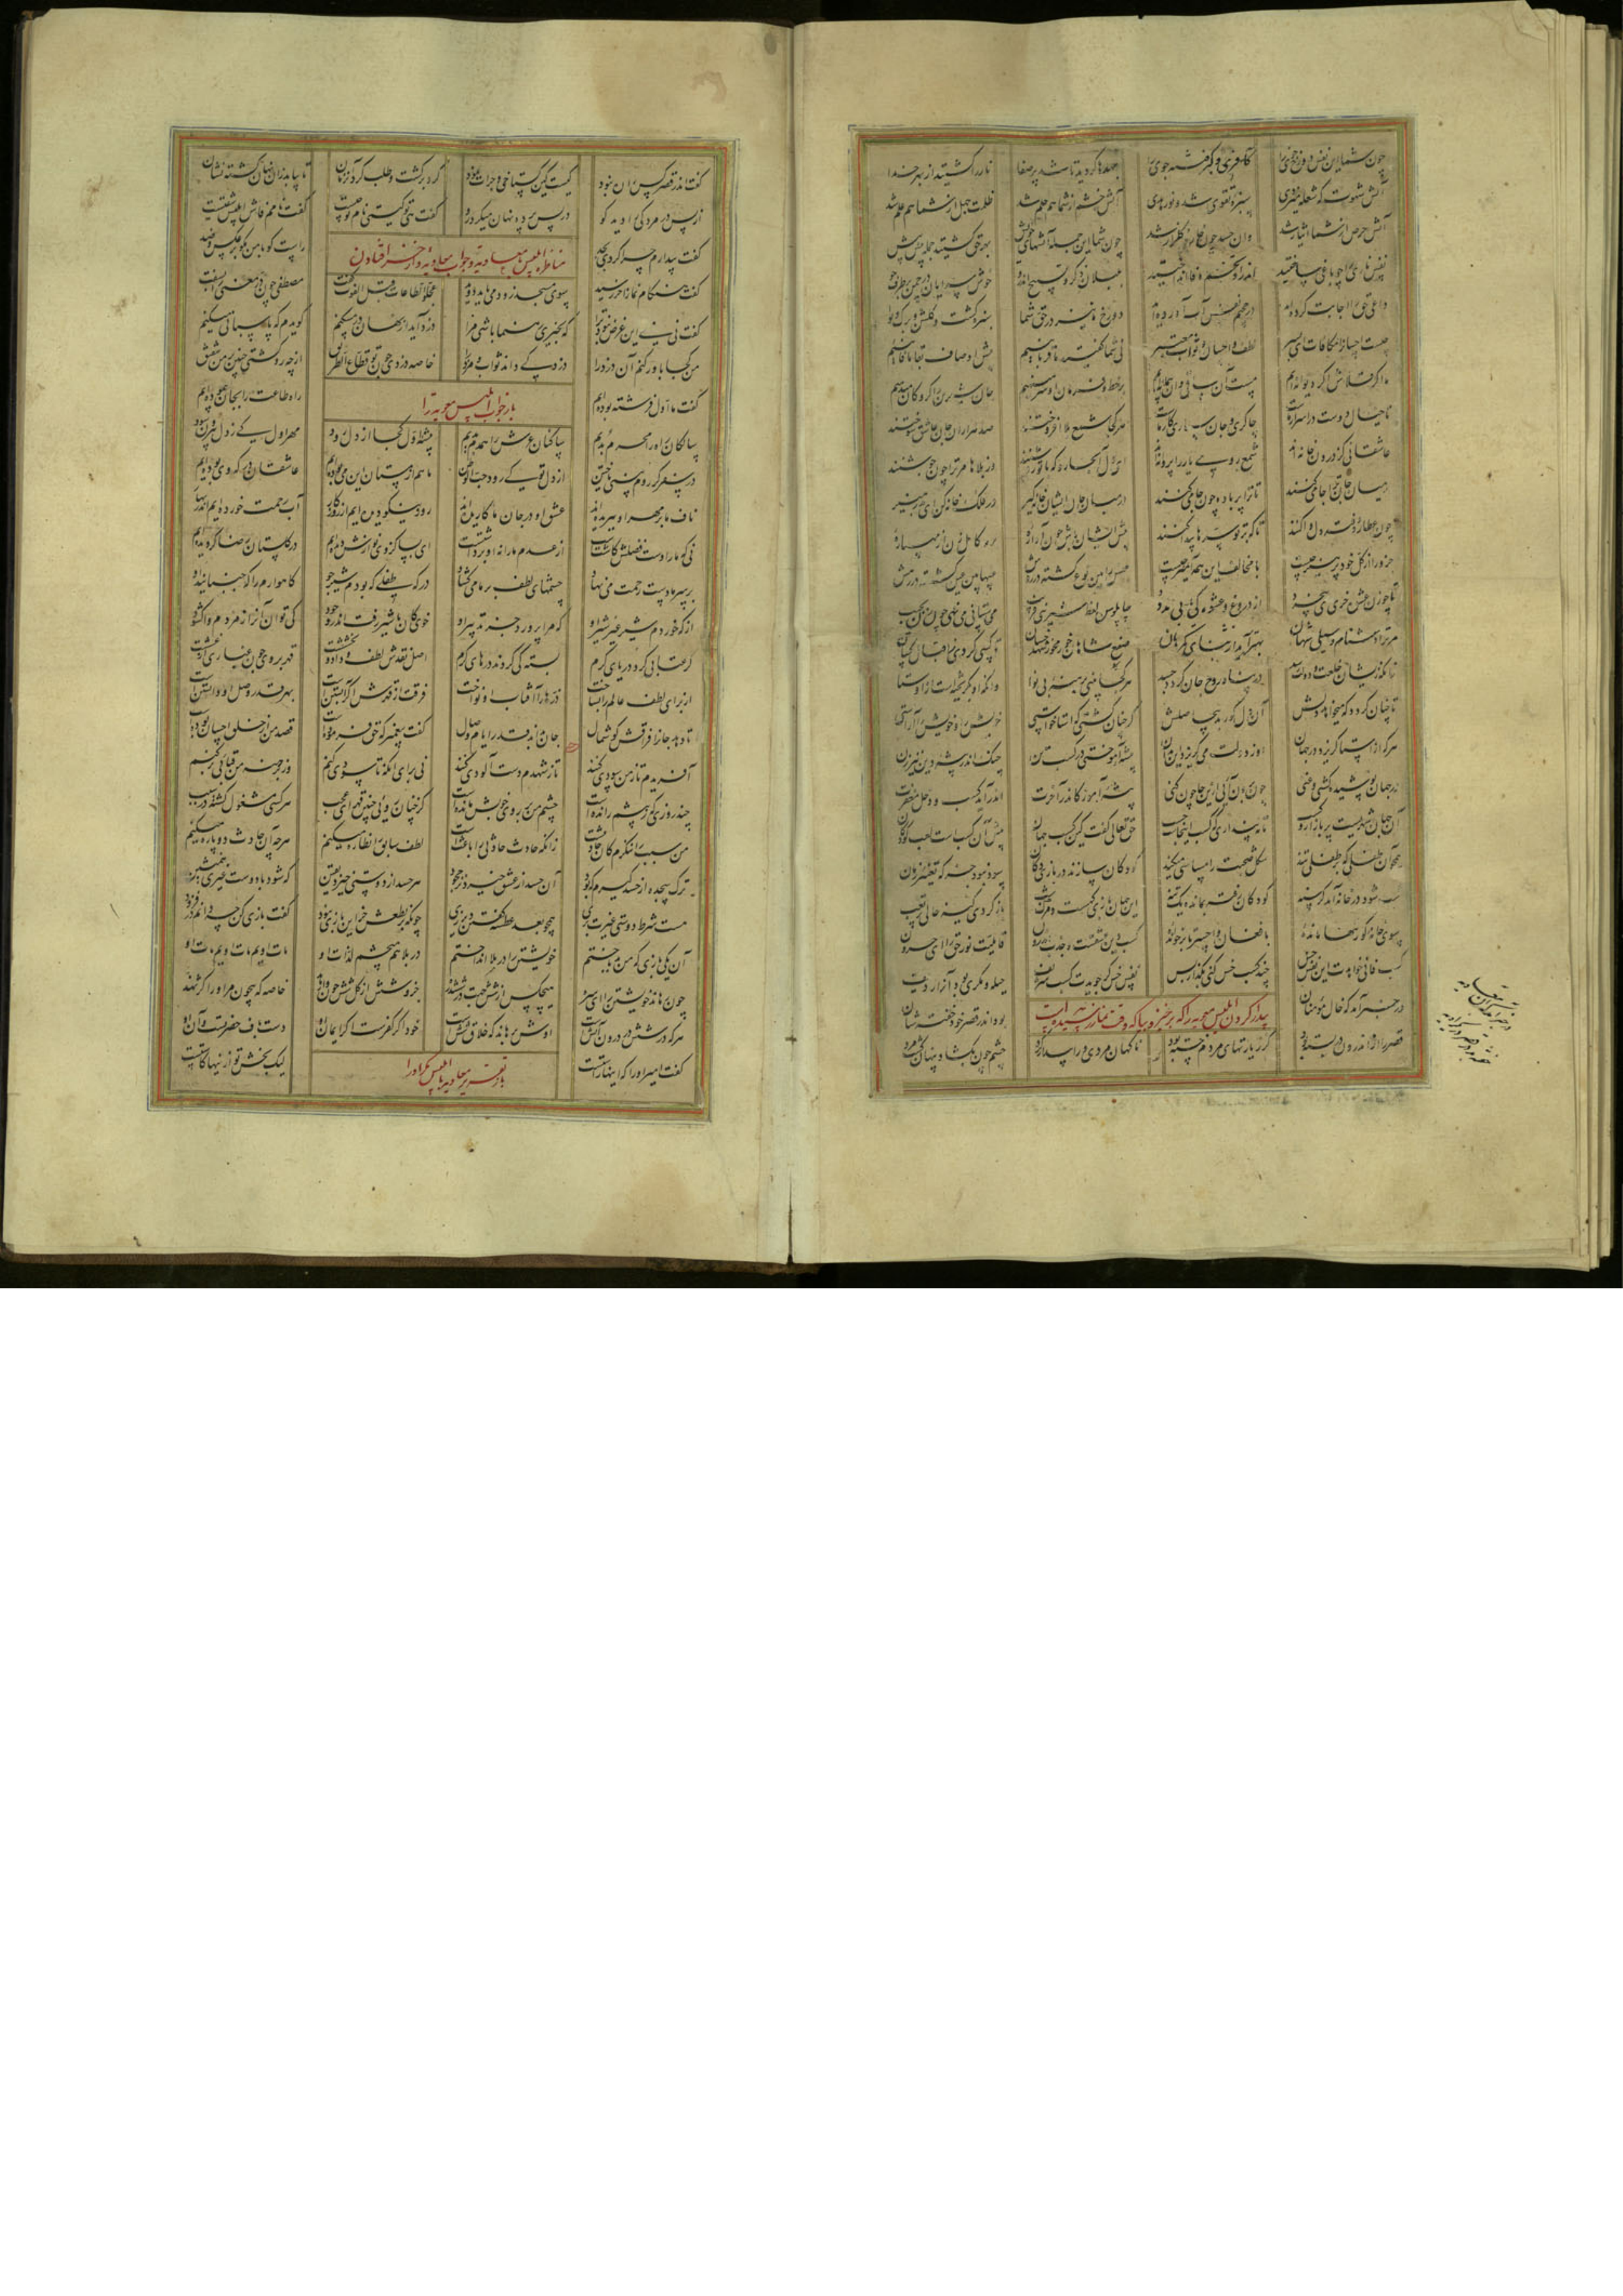 چون شما این نفس دوزخ خوی را آتشی گبر فتنه جوی را جهدها کردید تا شد پر صفا نار را کشتید از بهر خدا
آتش شهوت که شعله میزدی سبزه تقوی شد و نور هدی آتش خشم از شما هم حلم شد ظلمت جهل از شما هم علم شد
آتش حرص از شما ایثار شد وان حسد چون خار بد گلزار شد چون شما این جمله آتشهای خویش بهر حق کشتید جمله پیش پیش
نفس ناری را چو باغی ساختید اندرو تخم وفا انداختید بلبلان ذکر و تسبیح اندرو خوش سرایان در چمن بر طرف جو
داعی حق را اجابت کرده‌اید در جحیم نفس آب آورده‌اید دوزخ ما نیز در حق شما سبزه گشت و گلشن و برگ و نوا
چیست احسان را مکافات ای پسر لطف و احسان و ثواب معتبر نی شما گفتید ما قربانییم پیش اوصاف بقا ما فانییم
ما اگر قلاش اگر دیوانه‌ایم مست آن ساقی و آن پیمانه‌ایم بر خط و فرمان او سر مینهیم جان شیرین را گروگان میدهیم
تا خیال دوست در اسرار ماست چاکری و جان سپاری کار ماست هر کجا شمع بلا افروختند صد هزاران جان عاشق سوختند
عاشقانی کز درون خانه‌اند شمع روی یار را پروانه‌اند ای دل آنجا رو که با تو روشنند وز بلاها مر ترا چون جوشنند
در میان جان ترا جا میکنند تا ترا پر باده چون جامی کنند در میان جان ایشان خانه گیر در فلک خانه کن ای بدر منیر
چون عطارد دفتر دل وا کنند تا که بر تو سرها پیدا کنند پیش خویشان باش چون آواره بر مه کامل زن ار مه پاره
جزو را از کل خود پرهیز چیست با مخالف این همه آمیز چیست جنس را بین نوع گشته در روش غیبها بین عین گشته در رهش
تا چو زن عشوه خری ای بیخرد از دروغ و عشوه کی یابی مدد چاپلوس و لفظ شیرین و فریب می ستانی می نهی چون زن بجیب
مر ترا دشنام و سیلی شهان بهتر آید از ثنای گمرهان صفع شاهان خور مخور شهد خسان تا کسی گردی ز اقبال کسان
زانکه زیشان خلعت و دولت رسد در پناه روح جان گردد جسد هر کجا بینی برهنه بی نوا دانکه او بگریختست از اوستا
تا چنان گردد که میخواهد دلش آن دل کور بد بیحاصلش گر چنان گشتی که استا خواستی خویش را و خویش را آراستی
هر که از استا گریزد در جهان او ز دولت می گریزد این بدان پیشه آموختی در کسب تن چنگ اندر پیشه دینی بزن
در جهان پوشیده گشتی و غنی چون برون آیی ازینجا چون کنی پیشه آموز کاندر آخرت اندر آید کسب و دخل مغفرت
آن جهان شهریست پر بازار و کسب تا نپنداری که کسب اینجاست حسب حق تعالی گفت کین کسب جهان پیش آن کسب است لعب کودکان
همچو آن طفلی که بر طفلی تند شکل صحبت را مساسی میکند کودکان سازند در بازی دکان سود نبود جز که تعبیر زمان
شب شود در خانه آید گرسنه کودکان رفته بمانده یک تنه این جهان بازی گهست و مرگ شب باز گردی کیسه خالی پر تعب
سوی خانه گور تنها مانده با فغان واحسرتا برخوانده کسب دین عشقست و جذب اندرون قابلیت نور حق را ای حرون
کسب فانی خواهدت این نفس خس چند کسب خس کنی بگذار بس نفس خس گر جویدت کسب شریف حیله و مکری بود آنرا ردیف
در خبر آمد که خال مؤمنان بود اندر قصر خود خفته شبان
بیدار کردن ابلیس معویه را که برخیز و بیا که وقت نماز رسیده است
قصر را از اندرون در بسته بود کز زیارتهای مردم خسته بود ناگهان مردی ورا بیدار کرد چشم چون بگشاد پنهان گشت مرد
گفت اندر قصر کس را ره نبود کیست کین گستاخی و جرات نمود گرد برگشت و طلب کرد آن زمان تا بیابد زان نهان گشته نشان
از پس در مردکی را دید کو در پس پرده نهان میکرد رو گفت هی تو کیستی نام تو چیست گفت نامم فاش ابلیس شقیست
گفت بیدارم چرا کردی بجد راست گو با من مگو بر عکس و ضد
مناظره ابلیس با معاویه و جواب معاویه
گفت هنگام نماز آخر رسید سوی مسجد زود می باید دوید عجلوا الطاعات قبل الفوت گفت مصطفی چون در معنی بسفت
گفت نی نی این غرض نبود ترا که بخیری رهنما باشی مرا دزد آید از نهان در مسکنم گویدم که پاسبانی میکنم
من کجا باور کنم آن دزد را دزد کی داند ثواب و مزد را خاصه دزدی چون تو قطاع الطریق از چه رو گشتی چنین بر من شفیق
باز جواب ابلیس معویه را
گفت ما اول فرشته بوده‌ایم راه طاعت را بجان پیموده‌ایم
سالکان راه را محرم بدیم ساکنان عرش را همدم بدیم پیشه اول کجا از دل رود مهر اول کی ز دل بیرون شود
در سفر گر روم بینی یا ختن از دل تو کی رود حب الوطن ما هم از مستان این می بوده‌ایم عاشقان درگه وی بوده‌ایم
ناف ما بر مهر او ببریده‌اند عشق او در جان ما کاریده‌اند روز نیکو دیده‌ایم از روزگار آب رحمت خورده‌ایم اندر بهار
نی که ما را دست فضلش کاشتست از عدم ما را نه او برداشتست ای بسا کز وی نوازش دیده‌ایم در گلستان رضا گردیده‌ایم
بر سر ما دست رحمت می نهاد چشمهای لطف بر ما می گشاد در گه طفلی که بودم شیرجو گاهوارم را که جنبانید او
از که خوردم شیر غیر شیر او که مرا پرورد جز تدبیر او خوی کان با شیر رفت اندر وجود کی توان آنرا ز مردم وا گشود
گر عتابی کرد دریای کرم بسته کی گردند درهای کرم اصل نقدش لطف و داد و بخششست قهر بر وی چون غباری از غشست
از برای لطف عالم را بساخت ذره‌ها را آفتاب او نواخت فرقت از قهرش اگر آبستنست بهر قدر وصل او دانستنست
تا دهد جانرا فراقش گوشمال جان بداند قدر ایام وصال گفت پیغمبر که حق فرموده است قصد من از خلق احسان بوده است
آفریدم تا ز من سودی کنند تا ز شهدم دست آلودی کنند نی برای آنکه تا سودی کنم وز برهنه من قبایی بر کنم
چند روزی گر ز پیشم رانده است چشم من بر روی خوبش مانده است کز چنان رویی چنین قهر ای عجب هر کسی مشغول گشته در سبب
من سبب را ننگرم کان حادثست زانکه حادث حادثی را باعثست لطف سابق را نظاره میکنم هرچه آن حادث دو پاره میکنم
ترک سجده از حسد گیرم که بود آن حسد از عشق خیزد نز جحود هر حسد از دوستی خیزد یقین که شود با دوست غیری همنشین
هست شرط دوستی غیرت پزی همچو بعد عطسه گفتن دیر زی چونکه بر نطعش جز این بازی نبود گفت بازی کن چه دانم در فزود
آن یکی بازی که من بد باختم خویشتن را در بلا انداختم در بلا هم میچشم لذات او مات اویم مات اویم مات او
چون رهاند خویشتن را ای سره هیچکس از شش جهت در ششدره جزو شش از کل شش چون وا رهد خاصه که بیچون مر او را کژ نهد
هر که در شش درون آتشست اوش برهاند که خلاق ششست خود اگر کفرست اگر ایمان او دست باف حضرتست و آن او
گفت امیر او را که اینها راستست لیک بخش تو ازینها کاستست
باز تقریر معاویه با ابلیس مکر او را